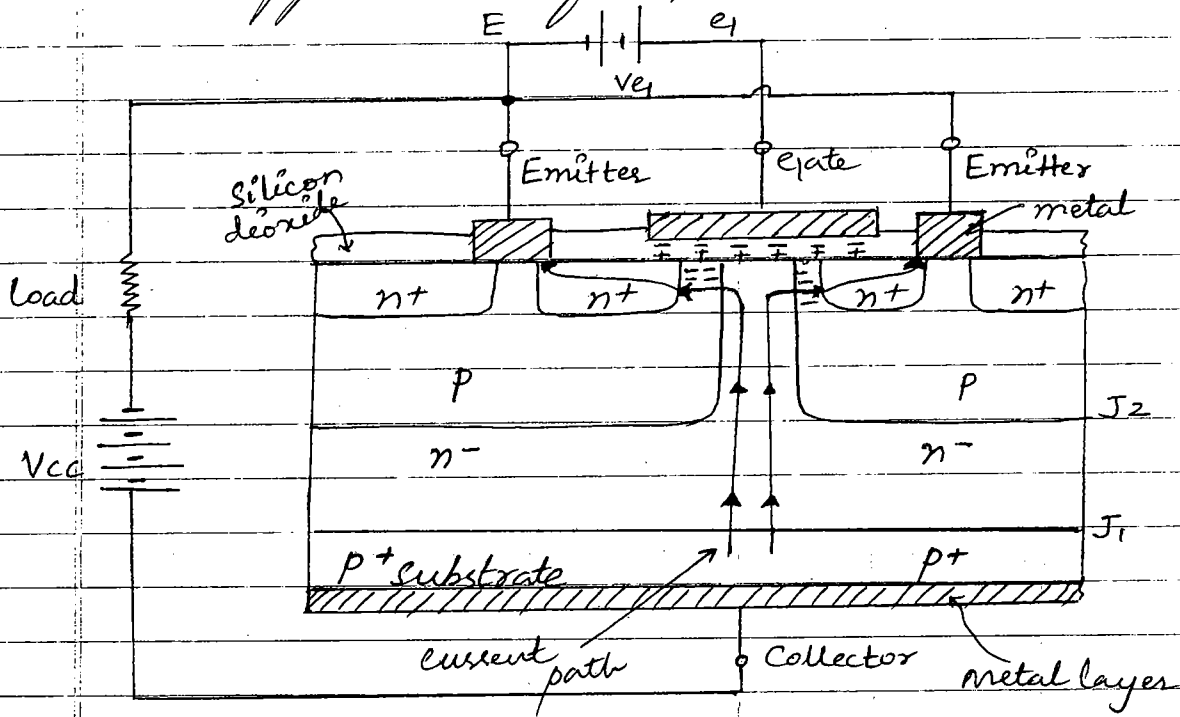 E
G
VG
Emitter
Gate
Emitter
Silicon
dioxide
metal
Load
n+
n+
n+
n+
P
P
J2
Vcc
n-
n-
J1
P+ substrate
P+
current
path
Collector
metal layer